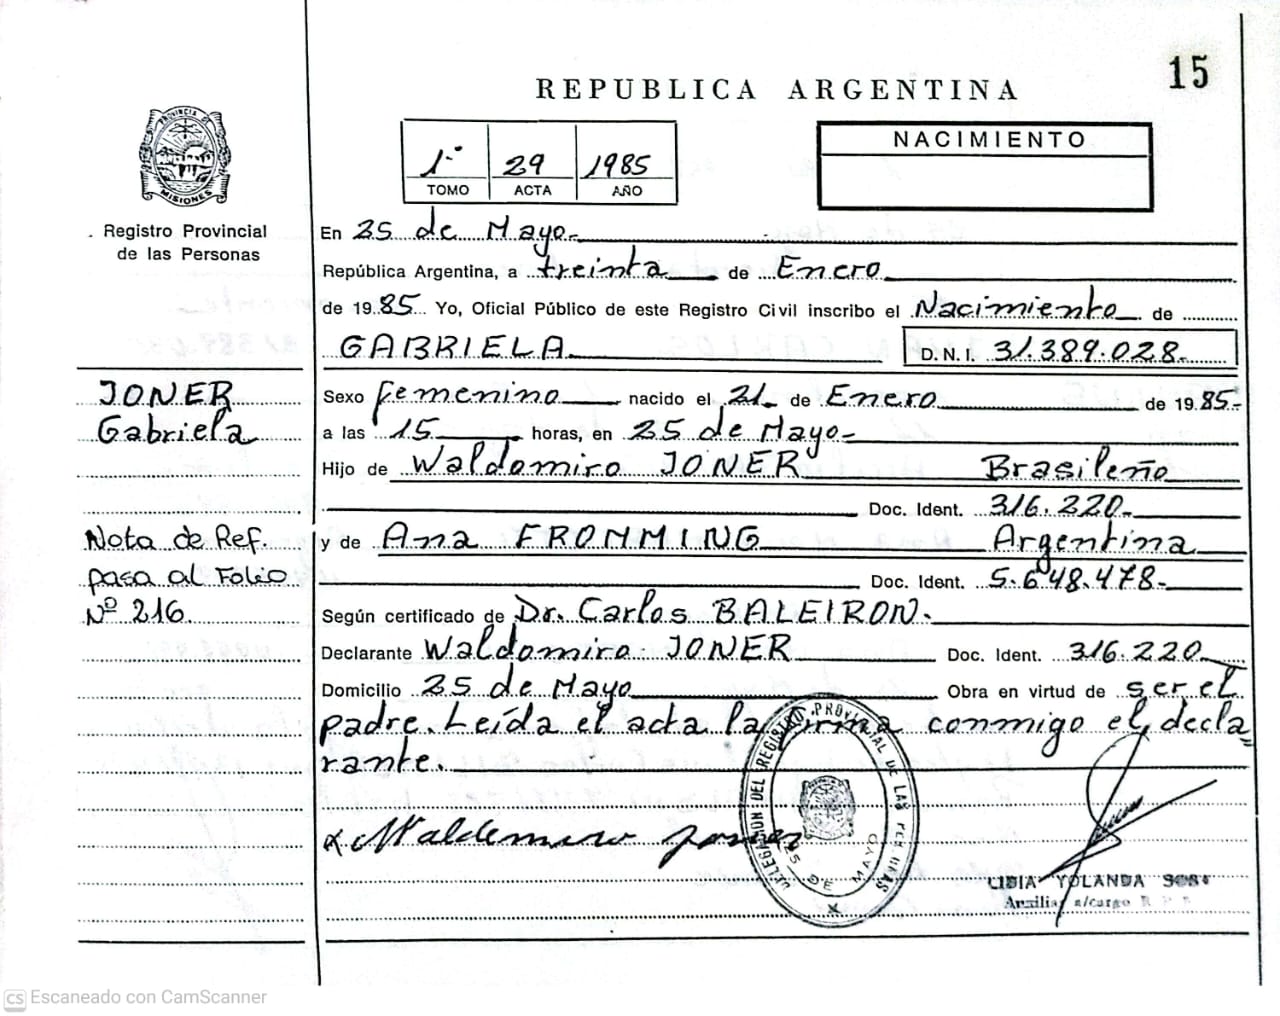 15
REPUBLICA ARGENTINA
NACIMIENTO
1º 29 1985
TOMO ACTA AÑO
PROVINCIA DE
MISIONES
Registro Provincial
de las Personas
En 25 de Mayo-
República Argentina, a treinta de Enero
de 1985 Yo, Oficial Público de este Registro Civil inscribo el Nacimiento de
GABRIELA D. N. I. 31.389.028-
JONER
Gabriela
Sexo femenino nacido el 21 de Enero de 1985-
a las 15 horas, en 25 de Mayo-
Hijo de Waldomiro JONER Brasileño
Doc. Ident. 316.220-
Nota de Ref.
pasa al Folio
Nº 216.
y de Ana FROMMING Argentina
Doc. Ident. 5.648.478-
Según certificado de Dr. Carlos BALEIRON.
Declarante Waldomiro JONER Doc. Ident. 316.220
Domicilio 25 de Mayo Obra en virtud de ser el
padre. Leída el acta la firma conmigo el decla-
rante.
Waldemiro Joner
DELEGACION DEL REGISTRO PROVINCIAL DE LAS PERSONAS
25 DE MAYO
LIDIA YOLANDA SOSA
Auxiliar a/cargo R. P. P.
CS Escaneado con CamScanner